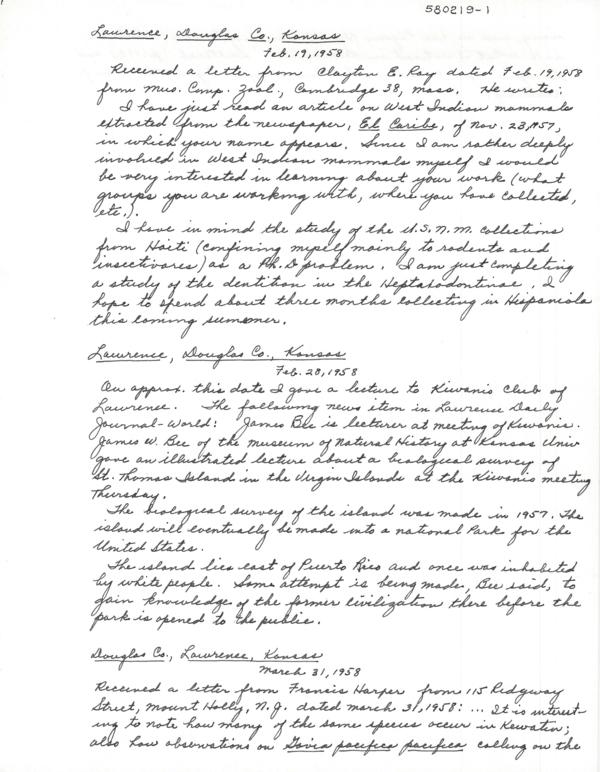 580219-1
Lawrence, Douglas Co., Kansas
Feb. 19, 1958
Received a letter from Clayton E. Ray dated Feb. 19, 1958
from Mus. Comp. Zool., Cambridge 38, Mass. He writes:
I have just read an article on West Indian mammals
extracted from the newspaper, El Caribe, of Nov. 23, 1957,
in which your name appears. Since I am rather deeply
involved in West Indian mammals myself I would
be very interested in learning about your work (what
groups you are working with, where you have collected,
etc.).
I have in mind the study of the U.S.N.M. collections
from Haiti (confining myself mainly to rodents and
insectivores) as a Ph.D problem. I am just completing
a study of the dentition in the Heptaxodontinae. I
hope to spend about three months collecting in Hispaniola
this coming summer.
Lawrence, Douglas Co., Kansas
Feb. 28, 1958
On approx. this date I gave a lecture to Kiwanis Club of
Lawrence. The following news item in Lawrence Daily
Journal-World: James Bee is lecturer at meeting of Kiwanis.
James W. Bee of the museum of Natural History at Kansas Univ
gave an illustrated lecture about a biological survey of
St. Thomas Island in the Virgin Islands at the Kiwanis meeting
Thursday.
The biological survey of the island was made in 1957. The
island will eventually be made into a national Park for the
United States.
The island lies east of Puerto Rico and once was inhabited
by white people. Some attempt is being made, Bee said, to
gain knowledge of the former civilization there before the
park is opened to the public.
Douglas Co., Lawrence, Kansas
March 31, 1958
Received a letter from Francis Harper from 115 Ridgway
Street, Mount Holly, N.J. dated March 31, 1958: ... It is interest-
ing to note how many of the same species occur in Keewatin;
also how observations on Gavia pacifica pacifica calling on the